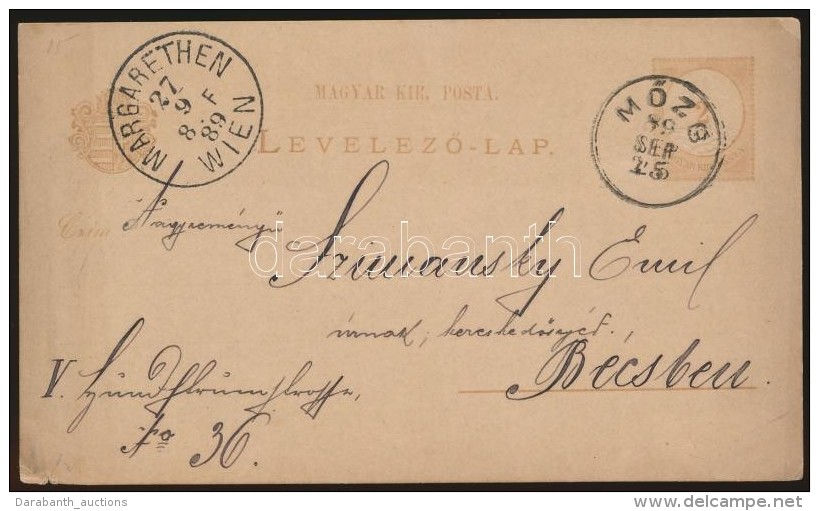 MARGARETHEN
27
9
8.F
89
WIEN
MŐZS
89
SEP
25
MAGYAR KIR. POSTA.
LEVELEZŐ-LAP.
Czim
Nagyreményü
Szimansky Emil
úrnak, kereskedősegéd.,
Bécsben.
V. Hundsthurmstrasse,
No 36.
darabanth
Darabanth_auctions
delcampe.net